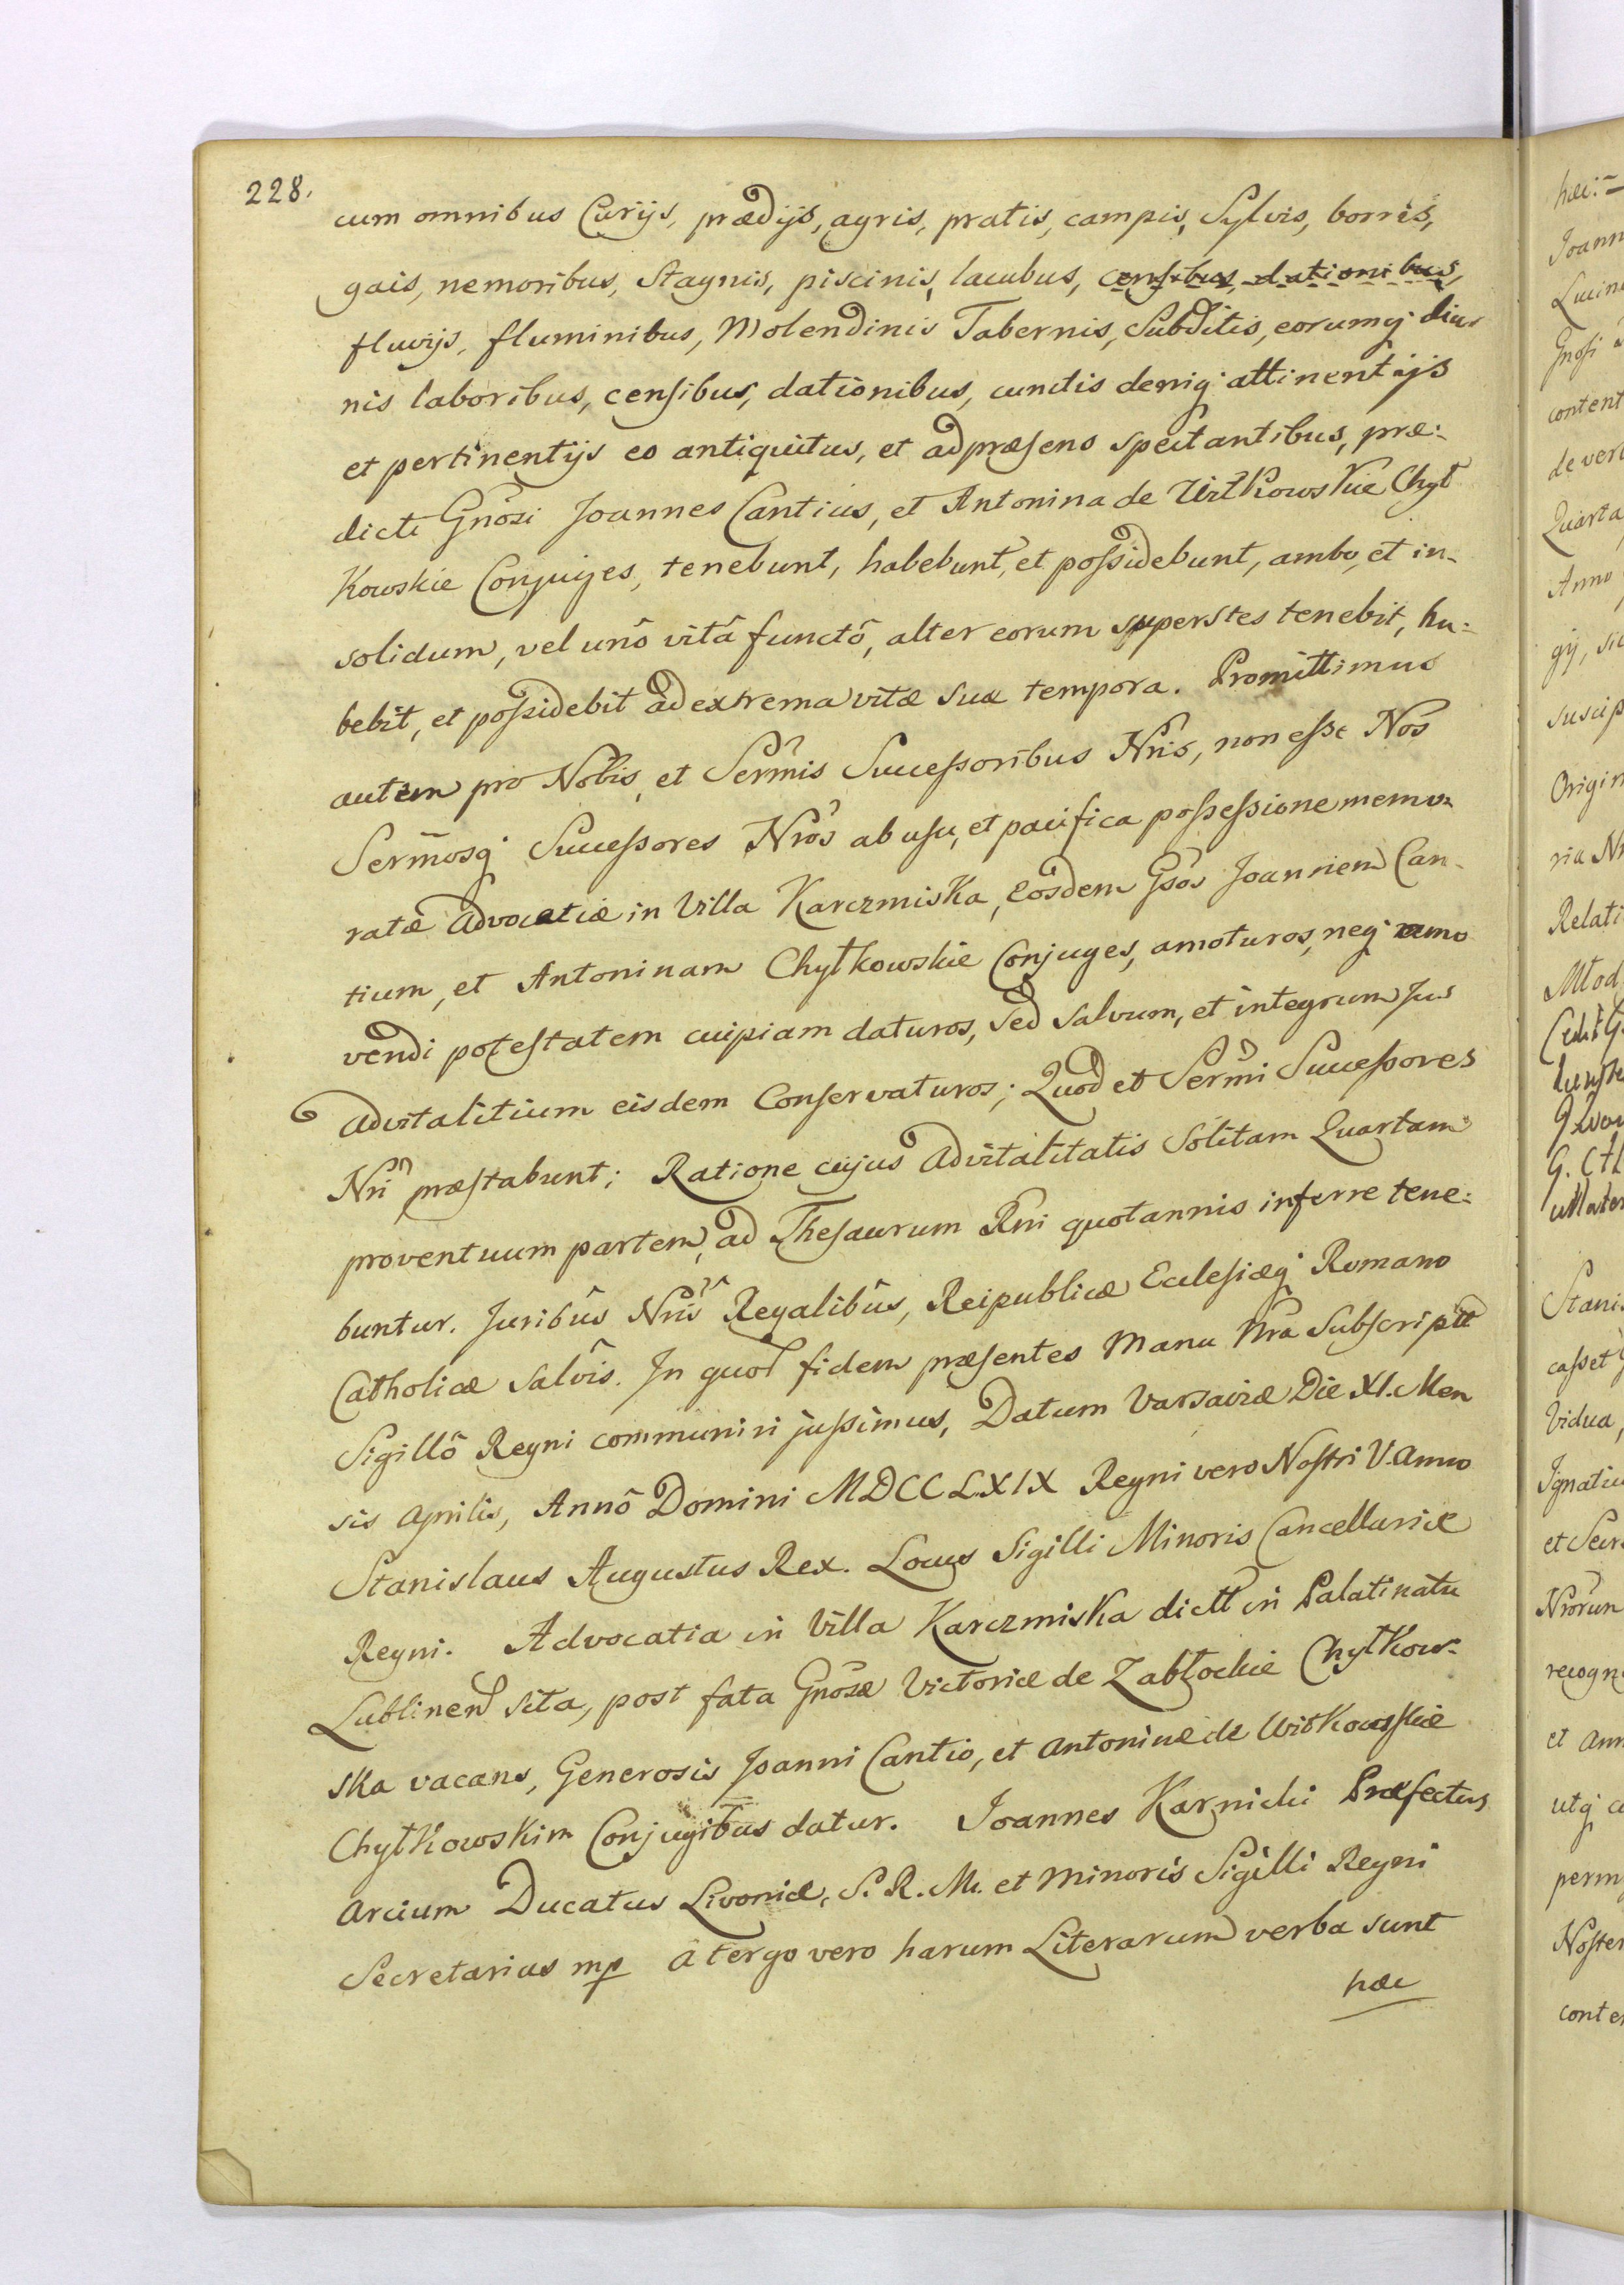 228.
cum omnibus Curijs, prædijs, agris, pratis, campis, Sylvis, borris,
gais, nemoribus, Stagnis, piscinis, lacubus, censibus, dationibus,
fluvijs, fluminibus, Molendinis Tabernis, Subditis, eorumq; diur
nis laboribus, censibus, dationibus, cunctis deniq; attinentijs
et pertinentijs eo antiquitus, et ad præsens spectantibus, præ:
dicti Gnosi Joannes Cantius, et Antonina de Witkowskie Chył
Kowskie Conjuges, tenebunt, habebunt, et possidebunt, ambo, et in-
solidum, vel unô vitâ functô, alter eorum superstes tenebit, ha:
bebit, et possidebit ad extrema vitæ suæ tempora. Promittimus
autem pro Nobis, et Sermis Successoribus Nris, non esse Nos
Sermosq; Successores Nros ab usu, et pacifica possessione memo-
ratæ Advocatiæ in Villa Karczmiska, Eosdem Gsos Joannem Can-
tium, et Antoninam Chyłkowskie Conjuges, amoturos, neq; amo
vendi potestatem cuipiam daturos, Sed salvum, et integrum Jus
Advitalitium eisdem Conservaturos; Quod et Sermi Successores
Nri præstabunt; Ratione cujus Advitalitatis Solitam Quartam
proventuum partem, ad Thesaurum Rni quotannis inferre tene:
buntur. Juribûs Nris Regalibûs, Reipublicæ Ecclesiæq; Romano
Catholicæ salvis. In quod fidem præsentes Manu Nra Subscriptt
Sigillô Regni communiri jussimus, Datum Varsaviæ Die XI. Men
sis Aprilis, Annô Domini MDCCLXIX Regni vero Nostri V. Anno
Stanislaus Augustus Rex. Locus Sigilli Minoris Cancellariæ
Regni. Advocatia in Villa Karczmiska dictt in Palatinatu
Lublinen sita, post fata Gnosæ Victoriæ de Zabłockie Chyłkow-
ska vacans, Generosis Joanni Cantio, et Antoninæ de Witkowskie
Chyłkowskim Conjugibus datur. Joannes Karnicki Præfectus
Arcium Ducatus Livoniæ, S. R. M. et Minoris Sigilli Regni
Secretarius mp A tergo vero harum Literarum verba sunt
hæc
hæc:
Joann
Lucin
Gnosi
content
de ver
Quarta
Anno
gij, sic
suscip
Origin
ria N
Relati
Młod
Stanis
casset
Vidua,
Ignatiu
et Secr
Nrorun
recogn
et Ann
utq; c
perm
Noster
conte